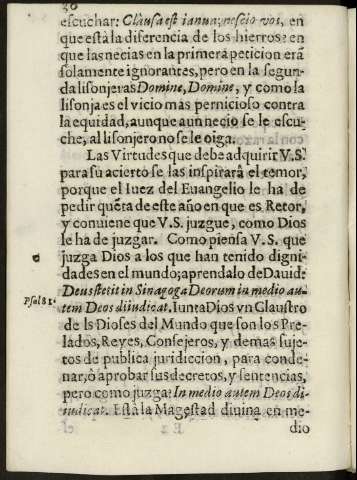 30
escuchar: Clausa est ianua; nescio vos, en
que està la diferencia de los hierros: en
que las necias en la primera peticion erã
solamente ignorantes, pero en la segun-
da lisonjeras Domine, Domine, y como la
lisonja es el vicio màs pernicioso contra
la equidad, aunque aun necio se le escu-
che, al lisonjero no se le oiga.
Las Virtudes que debe adquirir V.S.
para su acierto se las inspirarà el temor,
porque el Iuez del Euangelio le ha de
pedir quẽta de este año en que es Retor,
y conuiene que V.S. juzgue, como Dios
le ha de juzgar. Como piensa V.S. que
juzga Dios a los que han tenido digni-
dades en el mundo; aprendalo de Dauid:
Deus stetit in Sinagoga Deorum in medio au-
Psal 81.
tem Deos diiudicat. Iunta Dios vn Claustro
de ls Dioses del Mundo que son los Pre-
lados, Reyes, Consejeros, y demàs suje-
tos de publica juridiccion, para conde-
nar, ò aprobar sus decretos, y sentencias,
pero como juzga: In medio autem Deos di-
iudicat. Està la Magestad diuina en me-
dio